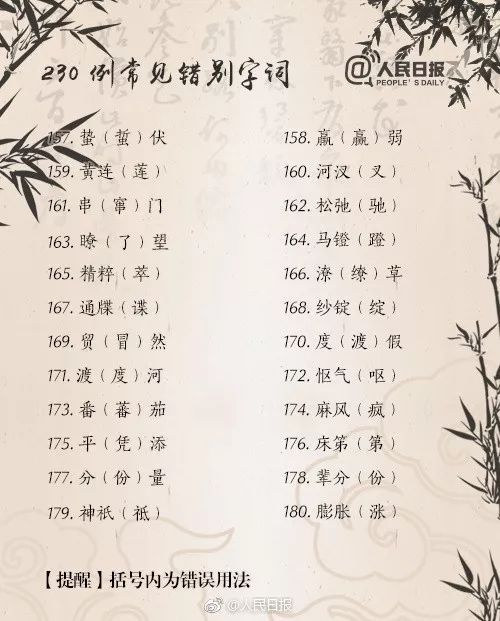 230例常见错别字词
@人民日报
PEOPLE'S DAILY
157. 蛰（蜇）伏 158. 羸（赢）弱
159. 黄连（莲） 160. 河汊（叉）
161. 串（窜）门 162. 松弛（驰）
163. 瞭（了）望 164. 马镫（蹬）
165. 精粹（萃） 166. 潦（缭）草
167. 通牒（谍） 168. 纱锭（绽）
169. 贸（冒）然 170. 度（渡）假
171. 渡（度）河 172. 怄气（呕）
173. 番（蕃）茄 174. 麻风（疯）
175. 平（凭）添 176. 床笫（第）
177. 分（份）量 178. 辈分（份）
179. 神祇（祗） 180. 膨胀（涨）
【提醒】括号内为错误用法
@人民日报